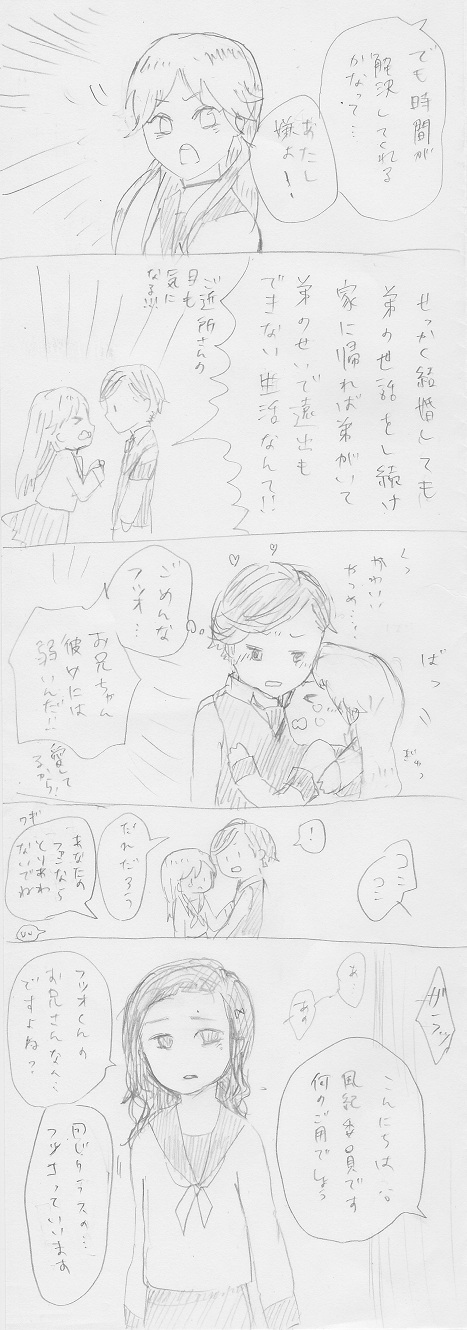 でも時間が
解決してくれる
かなって…
あたし
嫌よ!
せっかく結婚しても
弟の世話をし続け
家に帰れば弟がいて
弟のせいで遠出も
できない生活なんて!!
ご近所さんの
目も
気に
なる!!!
くっ
かわいい
やつめ…!
ばっ
ぎゅっ
ごめんな
フツオ…
お兄ちゃん
彼女には
弱いんだ!!
愛して
るから!
コン
コン
!
だれだろう
あなたの
ファンなら
とりあわ
ないでね
ガラッ
こんにちは
風紀委員です
何のご用でしょう
あ…
あの
フツオくんの
お兄さんなん…
ですよね?
同じクラスの…
っていいます